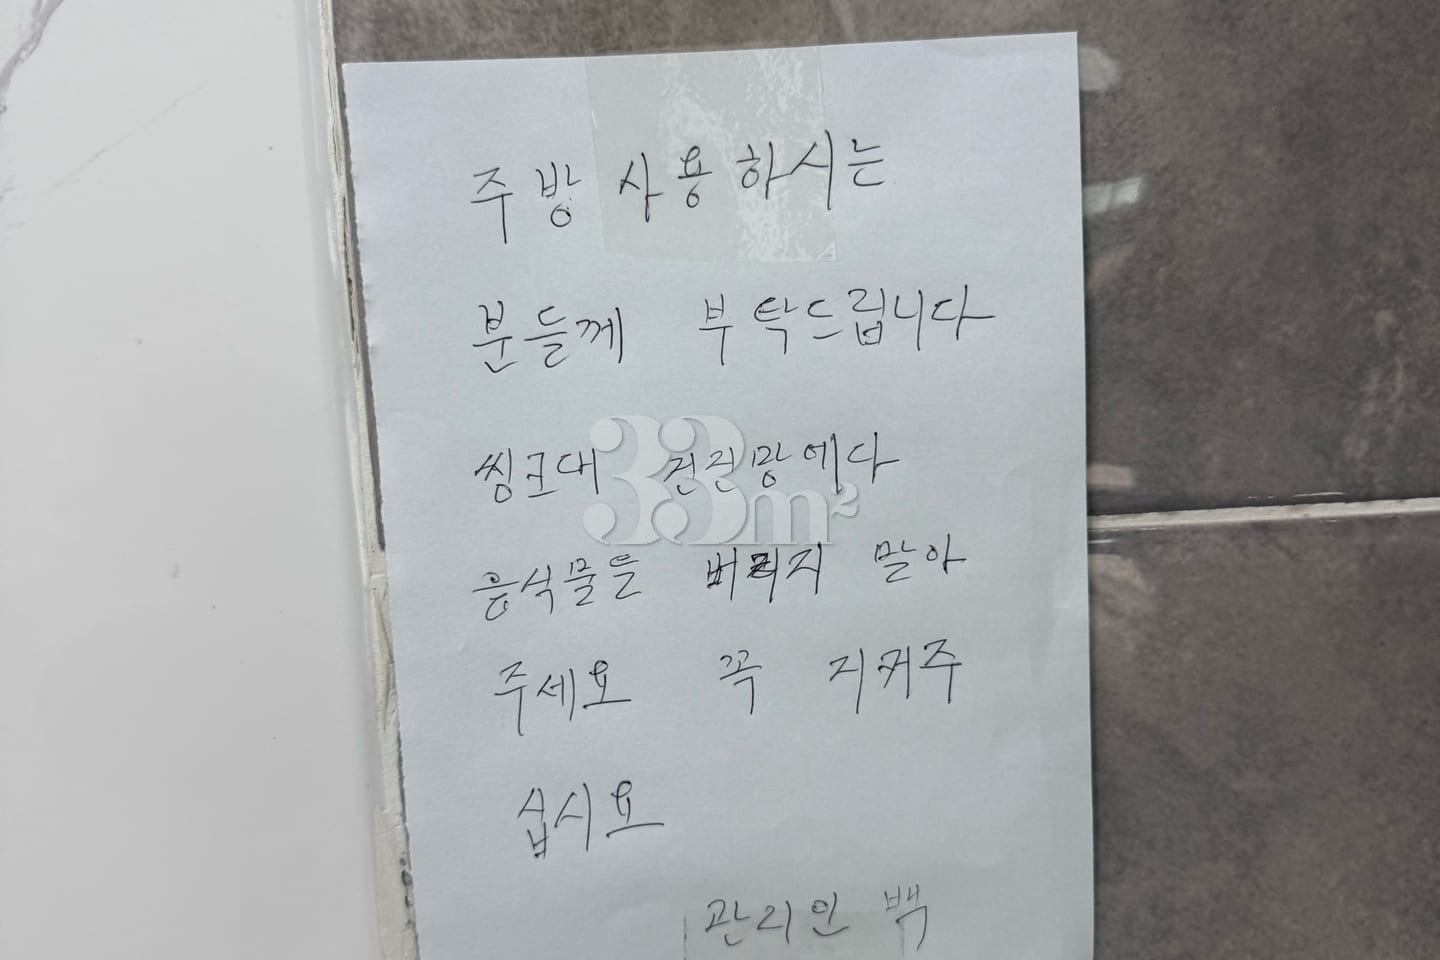 주방 사용하시는
분들께 부탁드립니다
씽크대 건진망에다
음식물들 버리지 말아
주세요 꼭 지켜주
십시요
관리인 백
33m²